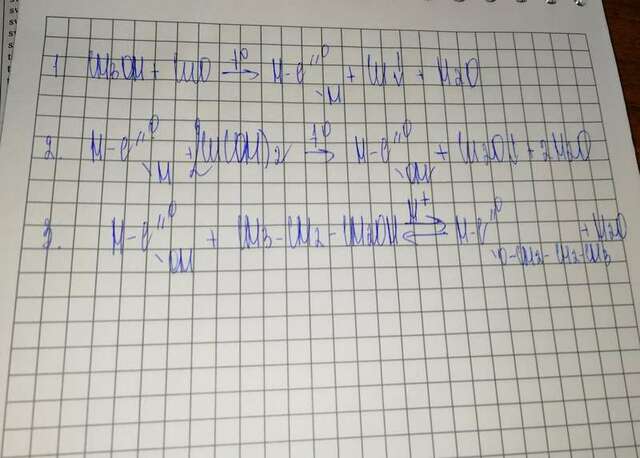 1 CH3OH + CuO t° → H-C=O -H + Cu↓ + H2O
2. H-C=O -H + 2Cu(OH)2 t° → H-C=O -OH + Cu2O↓ + 2H2O
3. H-C=O -OH + CH3-CH2-CH2OH H+ ⇌ H-C=O -O-CH2-CH2-CH3 + H2O